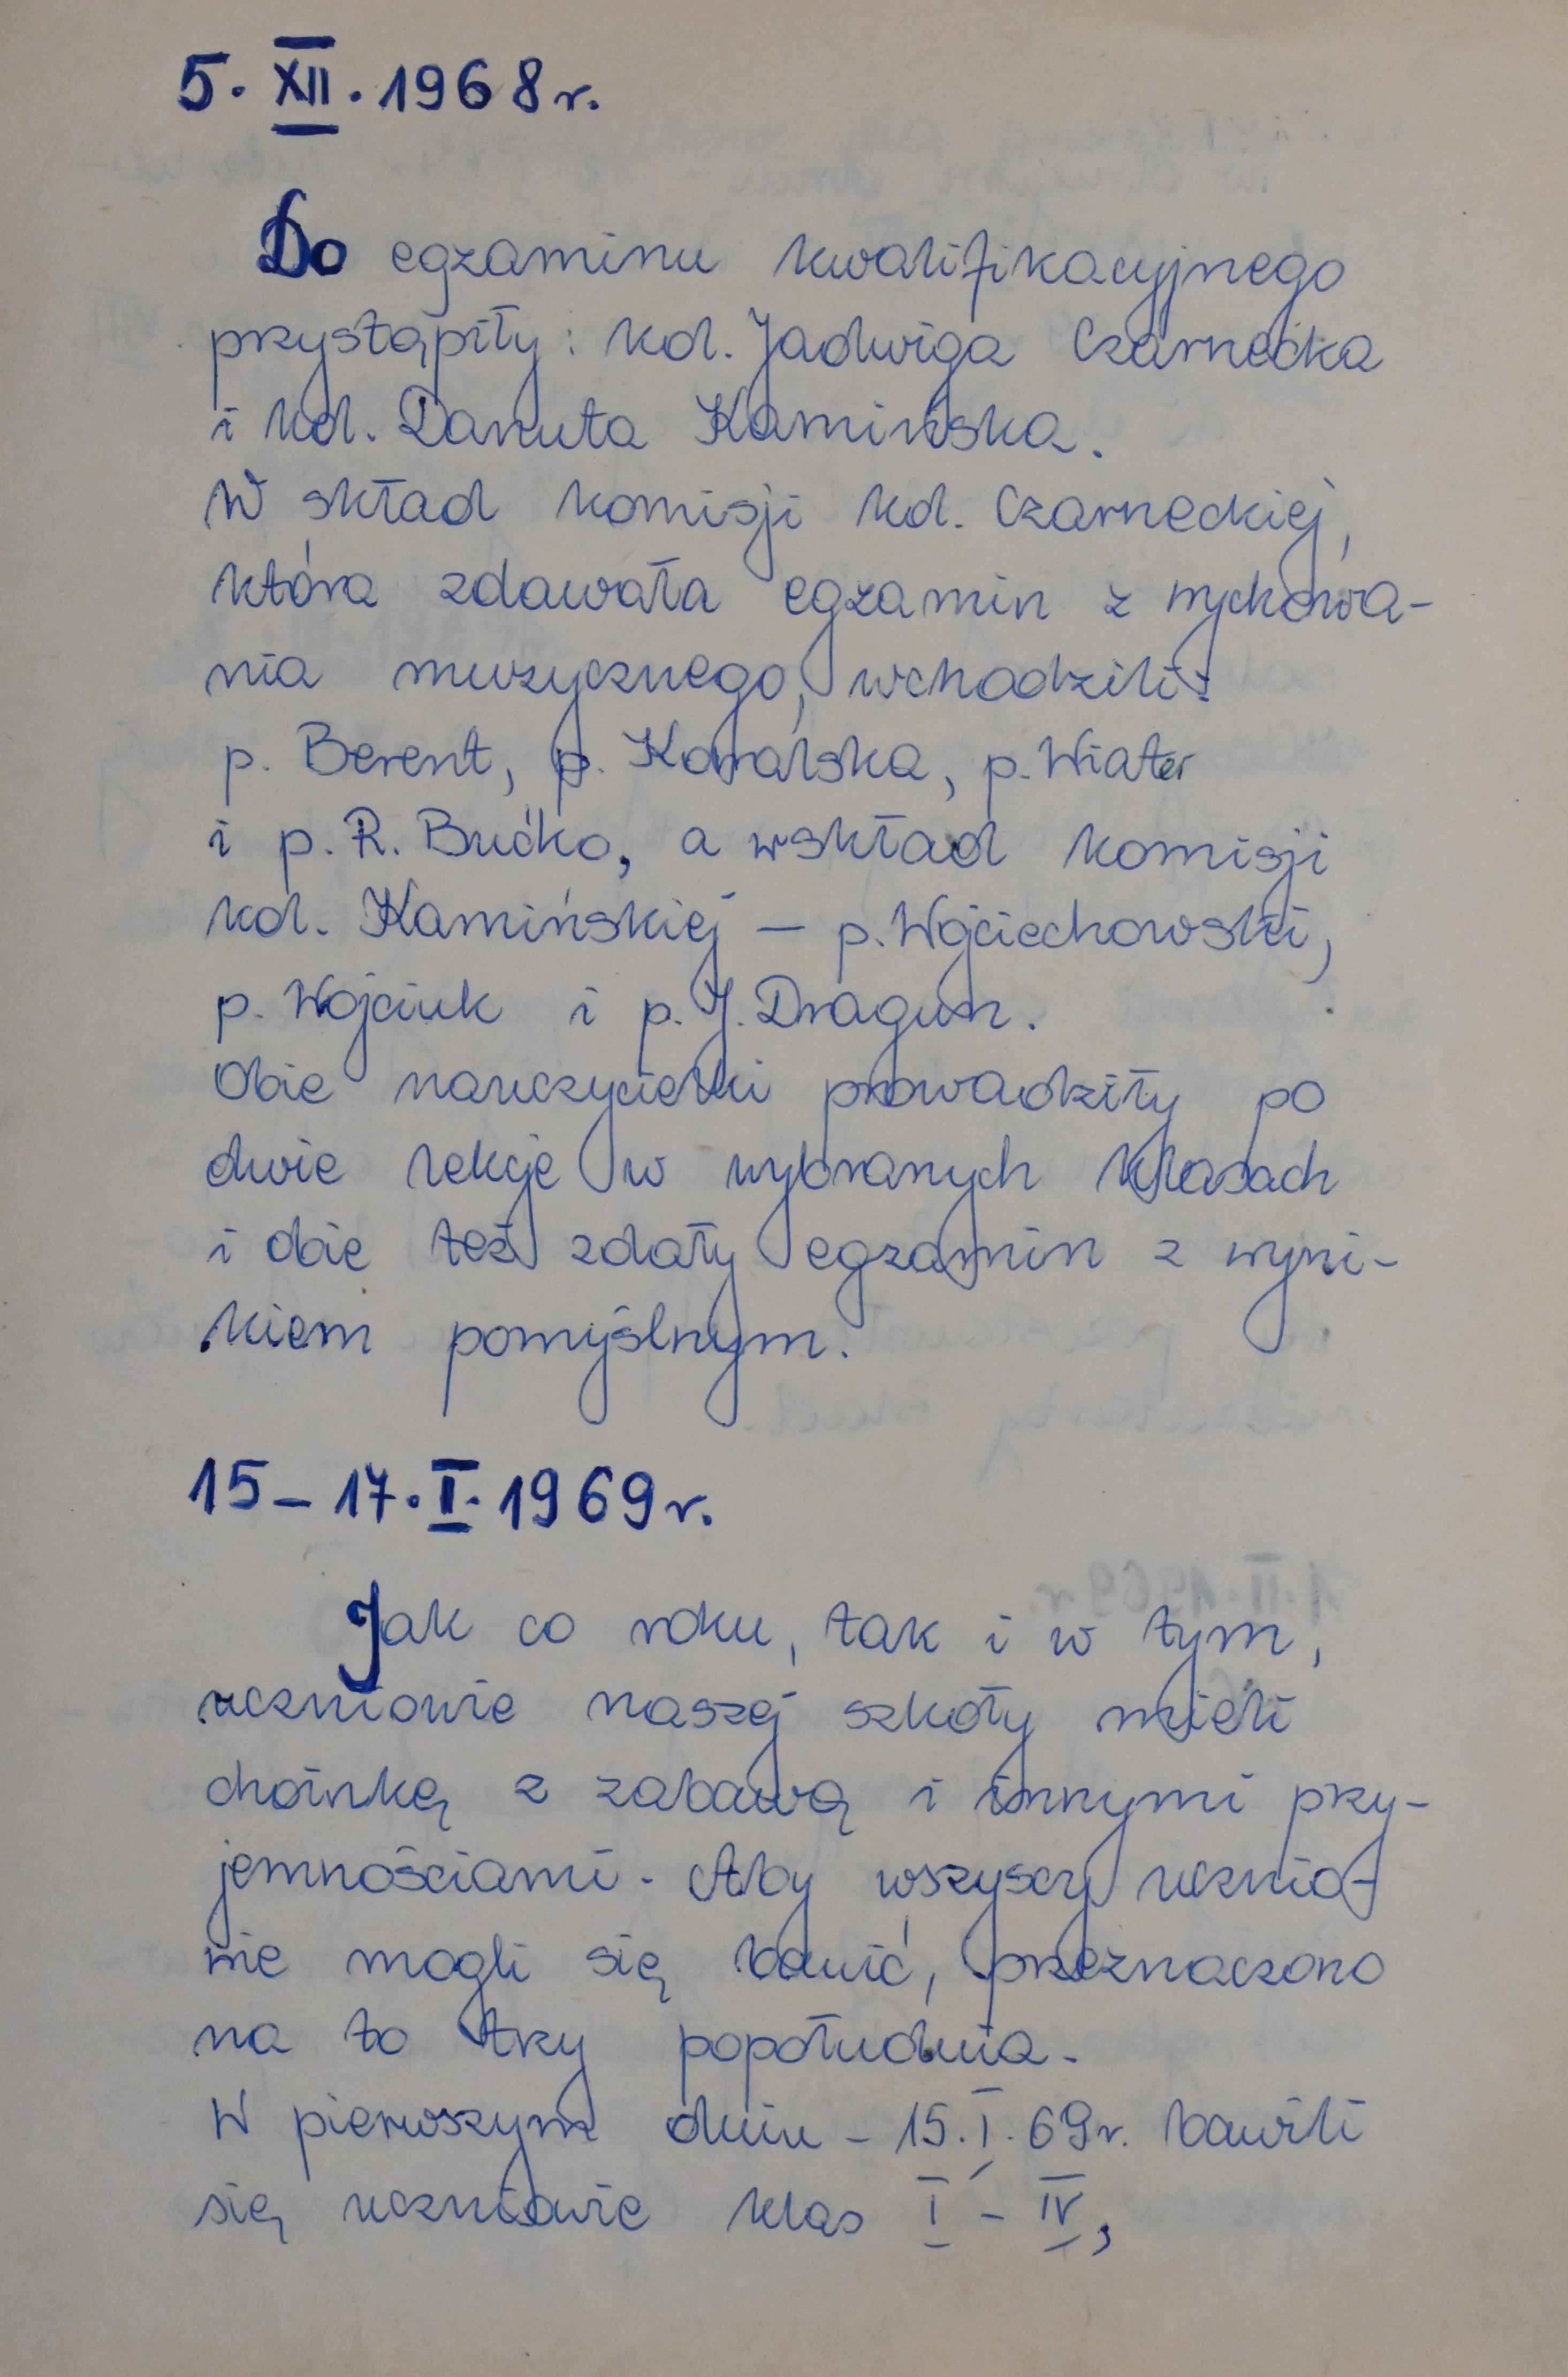 5. XII. 1968 r.
Do egzaminu kwalifikacyjnego
przystąpiły: kol. Jadwiga Czarnecka
i kol. Danuta Kamińska.
W skład komisji kol. Czarneckiej,
która zdawała egzamin z wychowa-
nia muzycznego, wchodzili:
p. Berent, p. Kowalska, p. Wiater
i p. R. Bućko, a wskład komisji
kol. Kamińskiej — p. Wojciechowski,
p. Wojciuk i p. J. Dragun.
Obie nauczycielki prowadziły po
dwie lekcje w wybranych klasach
i obie też zdały egzamin z wyni-
kiem pomyślnym.
15 – 17. I. 1969 r.
Jak co roku, tak i w tym,
uczniowie naszej szkoły mieli
choinkę z zabawą i innymi przy-
jemnościami. Aby wszyscy ucznio-
wie mogli się bawić, przeznaczono
na to trzy popołudnia.
W pierwszym dniu – 15. I. 69 r. bawili
się uczniowie klas I – IV,